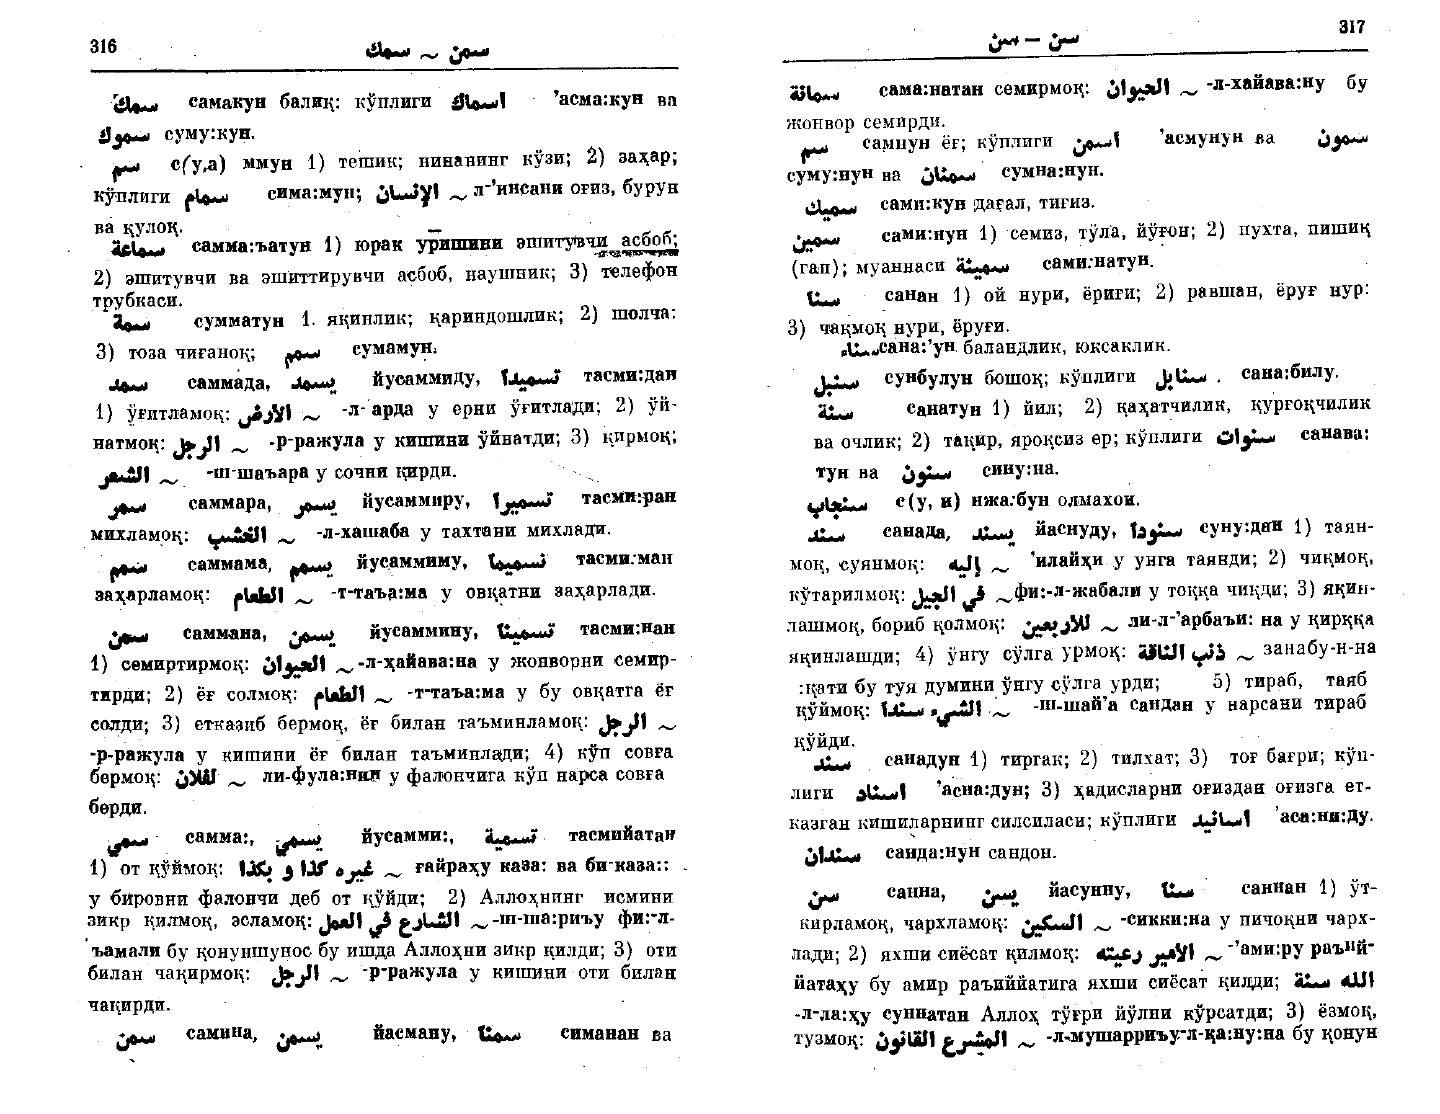 316
سمن ~ سمك
سمك самакун балиқ: кўплиги اسماك ’асма:кун ва
سموك суму:кун.
سم с(у,а) ммун 1) тешик; нинанинг кўзи; 2) заҳар;
кўплиги سمام сима:мун; الإنسان ~ л-’инсани оғиз, бурун
ва қулоқ.
سماعة самма:ъатун 1) юрак уришини эшитувчи асбоб;
2) эшитувчи ва эшиттирувчи асбоб, наушник; 3) телефон
трубкаси.
سمة сумматун 1. яқинлик; қариндошлик; 2) шолча;
3) тоза чиғаноқ; سمم сумамун.
سمد саммада, يسمد йусаммиду, تسميدا тасми:дан
1) ўғитламоқ: الأرض ~ -л-арда у ерни ўғитлади; 2) ўй-
натмоқ: الرجل ~ -р-ражула у кишини ўйнатди; 3) қирмоқ;
الشعر ~ -ш-шаъара у сочни қирди.
سمر саммара, يسمر йусаммиру, تسميرا тасми:ран
михламоқ: الخشب ~ -л-хашаба у тахтани михлади.
سمم саммама, يسمم йусаммиму, تسميما тасми:ман
заҳарламоқ: الطعام ~ -т-таъа:ма у овқатни заҳарлади.
سمن саммана, يسمن йусаммину, تسمينا тасми:нан
1) семиртирмоқ: الحيوان ~ -л-ҳайава:на у жонворни семир-
тирди; 2) ёғ солмоқ: الطعام ~ -т-таъа:ма у бу овқатга ёғ
солди; 3) етказиб бермоқ, ёғ билан таъминламоқ: الرجل ~
-р-ражула у кишини ёғ билан таъминлади; 4) кўп совға
бермоқ: لفلان ~ ли-фула:нин у фалончига кўп нарса совға
берди.
سمي самма:, يسمي йусамми:, تسمية тасмийатан
1) от қўймоқ: غيره كذا و بكذا ~ ғайраҳу каза: ва би-каза::
у бировни фалончи деб от қўйди; 2) Аллоҳнинг исмини
зикр қилмоқ, эсламоқ: الشارع في العمل ~ -ш-ша:риъу фи:-л-
ъамали бу қонуншунос бу ишда Аллоҳни зикр қилди; 3) оти
билан чақирмоқ: الرجل ~ -р-ражула у кишини оти билан
чақирди.
سمن самина, يسمن йасману, سمنا симанан ва
317
سمن — سن
سمانة сама:натан семирмоқ: الحيوان ~ -л-хайава:ну бу
жонвор семирди.
самнун ёғ; кўплиги اسمن ’асмунун ва سمون
суму:нун ва سمنان сумна:нун.
سميك сами:кун дағал, тиғиз.
سمين сами:нун 1) семиз, тўла, йўғон; 2) пухта, пишиқ
(гап); муаннаси سمينة сами:натун.
سنا санан 1) ой нури, ёриғи; 2) равшан, ёруғ нур:
3) чақмоқ нури, ёруғи.
سناء сана:’ун баландлик, юксаклик.
سنبل сунбулун бошоқ; кўплиги سنابل . сана:билу.
سنة санатун 1) йил; 2) қаҳатчилик, қурғоқчилик
ва очлик; 2) тақир, яроқсиз ер; кўплиги سنوات санава:
тун ва سنون сину:на.
سنجاب с(у, и) нжа:бун олмахон.
سند санада, يسند йаснуду, سنودا суну:дан 1) таян-
моқ, суянмоқ: إليه ~ ’илайҳи у унга таянди; 2) чиқмоқ,
кўтарилмоқ: في الجبل ~ фи:-л-жабали у тоққа чиқди; 3) яқин-
лашмоқ, бориб қолмоқ: للأربعين ~ ли-л-’арбаъи: на у қирққа
яқинлашди; 4) ўнгу сўлга урмоқ: ذنب الناقة ~ занабу-н-на
:қати бу туя думини ўнгу сўлга урди; 5) тираб, таяб
қўймоқ: الشيء سندا ~ -ш-шай’а сандан у нарсани тираб
қўйди.
سند санадун 1) тиргак; 2) тилхат; 3) тоғ бағри; кўп-
лиги اسناد ’асна:дун; 3) ҳадисларни оғиздан оғизга ет-
казган кишиларнинг силсиласи; кўплиги اسانيد ’аса:ни:Ду.
سندان санда:нун сандон.
سن санна, يسن йасунну, سنا саннан 1) ўт-
кирламоқ, чархламоқ: السكين ~ -сикки:на у пичоқни чарх-
лади; 2) яхши сиёсат қилмоқ: الامير رعيته ~ -’ами:ру раъий-
йатаҳу бу амир раъиййатига яхши сиёсат қилди; الله سنة
-л-ла:ҳу суннатан Аллоҳ тўғри йўлни кўрсатди; 3) ёзмоқ,
тузмоқ: المشرع القانون ~ -л-мушарриъу-л-қа:ну:на бу қонун